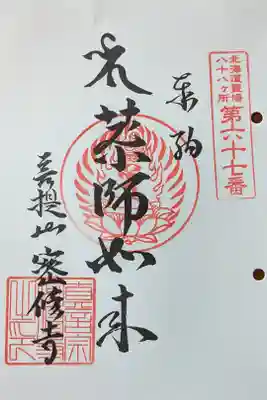 北海道霊場
八十八ヶ所
第六十七番
薬師如来
菩提山 密修寺
真言宗